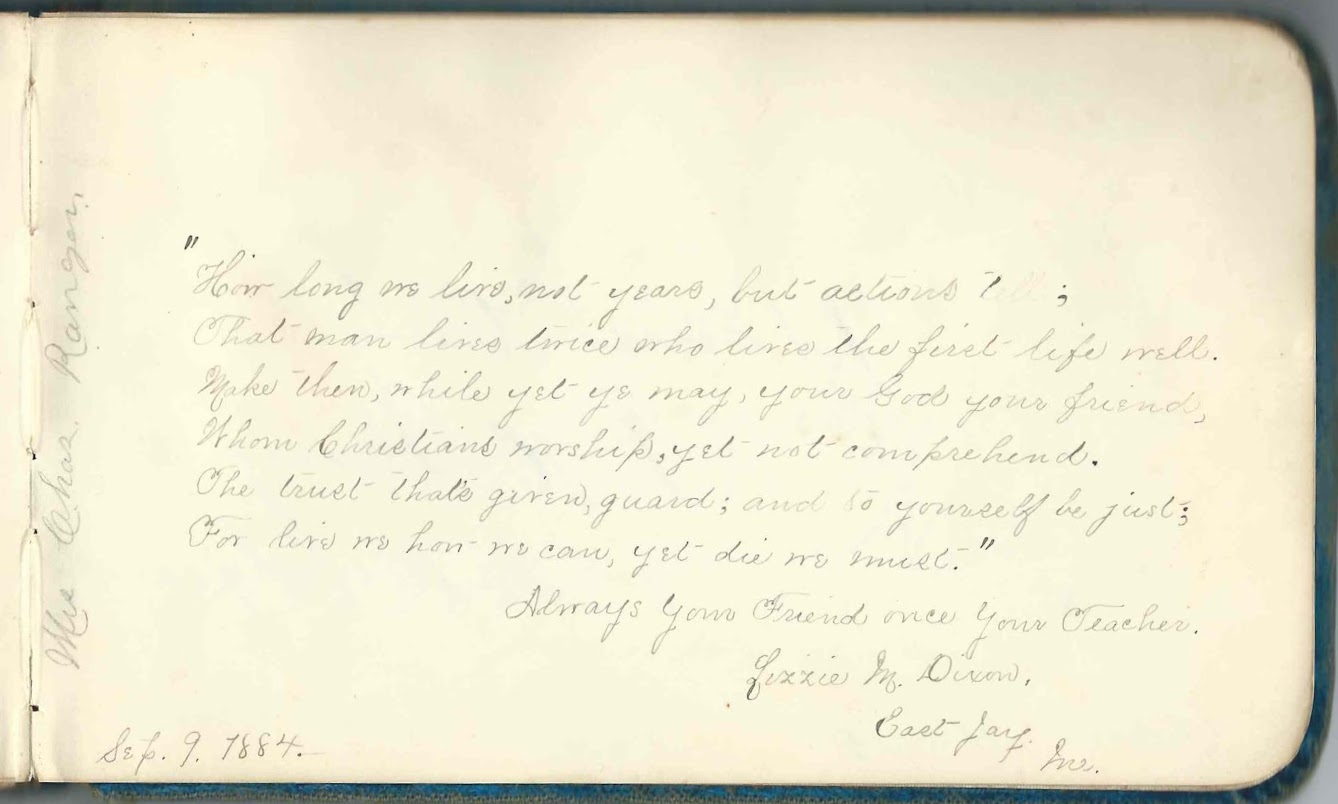 "How long we live, not years, but actions tell;
That man lives twice who lives the first life well.
Make then, while yet ye may, your God your friend,
Whom Christians worship, yet not comprehend.
The trust that's given, guard; and to yourself be just;
For live we how we can, yet die we must."
Always Your Friend once Your Teacher.
Lizzie M. Dixon,
East Jay.
Me.
Sep. 9. 1884.
Chas. Ranger.